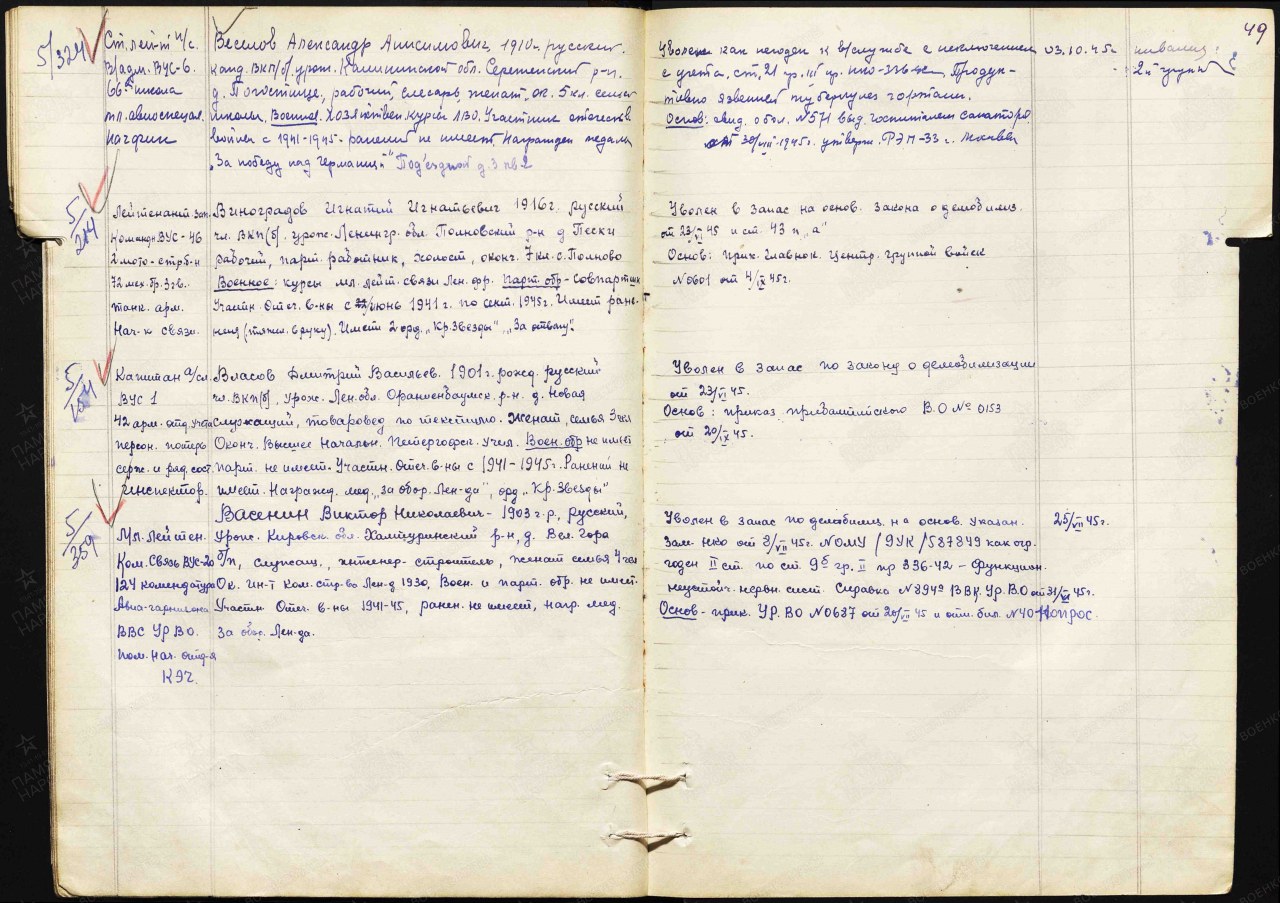 49
5/324
Ст. лейт-т и/с.
В/адм. ВУС-6.
66ая школа
мл. авиоспециал.
начфин
Веселов Александр Анисимович, 1910г. русский.
канд. ВКП/б/, урож. Калининской обл. Сережинский р-н
д. Погостище, рабочий, слесарь, женат, ок. 5 кл. сельск
школы, Военное. Хозяйствен. курсы ЛВО. Участник отечеств
войны с 1941-1945- ранений не имеет, Награжден медал
"За победу над Германией" Подъездной д. 3 кв. 2
Уволен как негоден к в/службе с исключением
с учета, ст. 21 гр. III пр. НКО-336 Продук-
тивно язвенный туберкулез гортани.
Основ: свид. о бол. №571 выд. госпиталем санатори
от 30/VIII-1945г. утверж. РЭП-33 г. Москвы
03.10.45г
инвалид
2й группы
5/204
Лейтенант зап.
Команд. ВУС-46
2 мото-стр. б-н
72 мех. бр. 3 гв.
танк. арм.
Нач-к связи.
Виноградов Игнатий Игнатьевич 1916г. русский
чл. ВКП(б). урож. Ленингр. обл. Полновский р-н д Пески
рабочий, парт. работник, холост, оконч. 7 кл. с. Полново
Военное: курсы мл. лейт. связи Лен. фр. Парт. обр-совпартшк
Участн. Отеч. в-ны с июнь 1941г. по сент. 1945г. Имеет ране-
ния (тяжел. в руку). Имеет 2 орд. "Кр. Звезды", "За отвагу".
Уволен в запас на основ. Закона о демобилиз.
от 23/VI 45 и ст. 43 п "а"
Основ: прик. Главнок. Центр. группой войск
№0601 от 4/IX 45г.
5/
Капитан а/сл.
ВУС 1
42 арм. отд. учета
персон. потерь
серж. и ряд. сост.
Инспектор.
Власов Дмитрий Васильев. 1901г. рожд. русский
чл. ВКП(б), урож. Лен. обл. Ораниенбаумск. р-н. д. Новая
служащий, товаровед по текстилю. Женат, семья 3 чел
Оконч. Высшее Начальн. Петергофск. учил. Воен. обр не имеет
парт. не имеет. Участн. Отеч. в-ны с 1941-1945г. Ранений не
имеет. Награжд. мед. "за обор. Лен-да", орд "Кр. Звезды"
Уволен в запас по закону о демобилизации
от 23/VI 45.
Основ: приказ Прибалтийского В.О №0153
от 20/IX 45.
5/259
Мл. Лейтен.
Ком. Связь ВУС-20
124 комендатура
Авиа-гарнизона
ВВС Ур ВО.
пом. нач. отд-я
КЭЧ.
Васенин Виктор Николаевич- 1903 г.р., русский,
Урож. Кировск. обл. Халтуринский р-н, д. Вел. Гора
б/п, служащ., инженер-строитель, женат семья 4 чел
Ок. ин-т ком. стр-во Лен-д 1930, Воен. и парт. обр. не имеет.
Участн. Отеч. в-ны 1941-45, ранен. не имеет, нагр. мед.
За обор. Лен-да.
Уволен в запас по демобилиз. на основ. указан.
Зам. НКО от 3/VII 45г. №ОМУ /9УК/587849 как огр.
годен II ст. по ст. 9б гр. II пр 336-42 - Функцион.
неустойч. нервн. сист. Справка №8949 ВВК Ур. ВО от 31/ 45г.
Основ- прик. Ур. ВО №0687 от 20/VII 45 и отм. бил. №40- Допрос.
25/VII 45г.